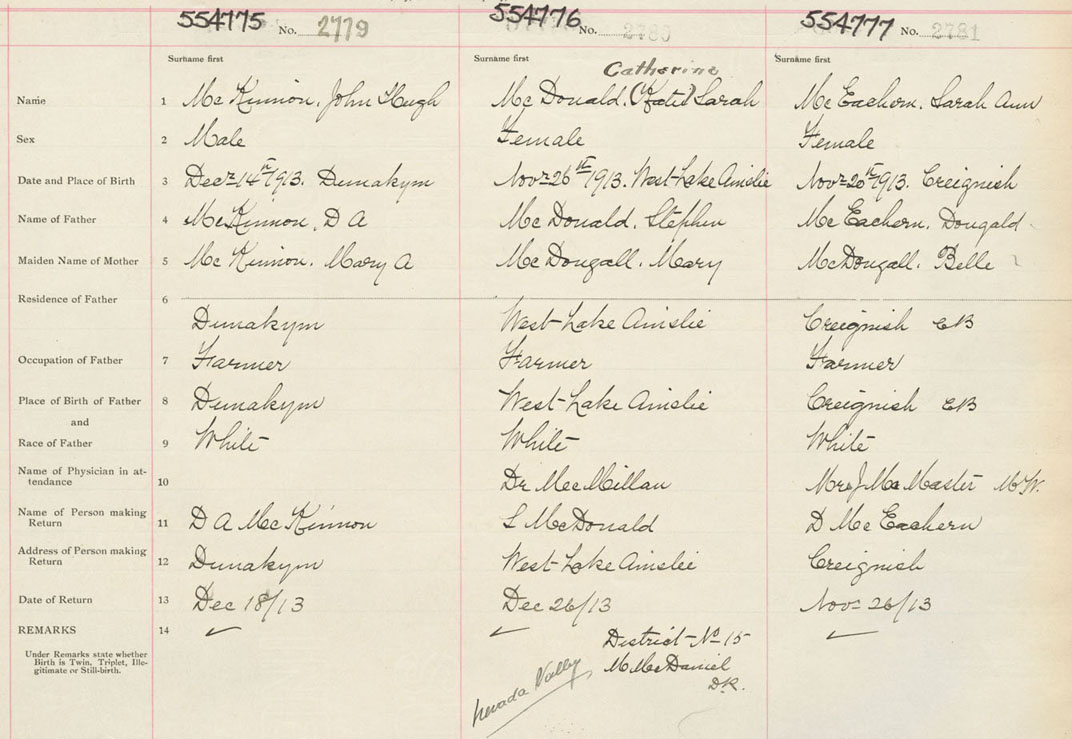 554775 No. 2779 554776 No. 2780 554777 No. 2781
Surname first Surname first Surname first
Catherine
Name 1 Mc Kinnon. John Hugh Mc Donald. (Katie) Sarah Mc Eachern. Sarah Ann
Sex 2 Male Female Female
Date and Place of Birth 3 Decr 14th 1913. Dunakym Novr 26th 1913. West Lake Ainslie Novr 20th 1913. Creignish
Name of Father 4 McKinnon, D A Mc Donald. Stephen Mc Eachern. Dougald
Maiden Name of Mother 5 Mc Kinnon. Mary A McDougall. Mary McDougall. Belle
Residence of Father 6
Dunakym West Lake Ainslie Creignish CB
Occupation of Father 7 Farmer Farmer Farmer
Place of Birth of Father 8 Dunakym West Lake Ainslie Creignish CB
and
Race of Father 9 White White White
Name of Physician in at-
tendance 10 Dr MacMillan Mrs J MacMaster M.W.
Name of Person making
Return 11 D A Mc Kinnon S McDonald D Mc Eachern
Address of Person making
Return 12 Dunakym West Lake Ainslie Creignish
Date of Return 13 Dec 18/13 Dec 26/13 Nov 26/13
REMARKS 14
Under Remarks state whether
Birth is Twin, Triplet, Ille-
gitimate or Still-birth.
District No 15
M McDaniel
D.R.
Nevada Valley